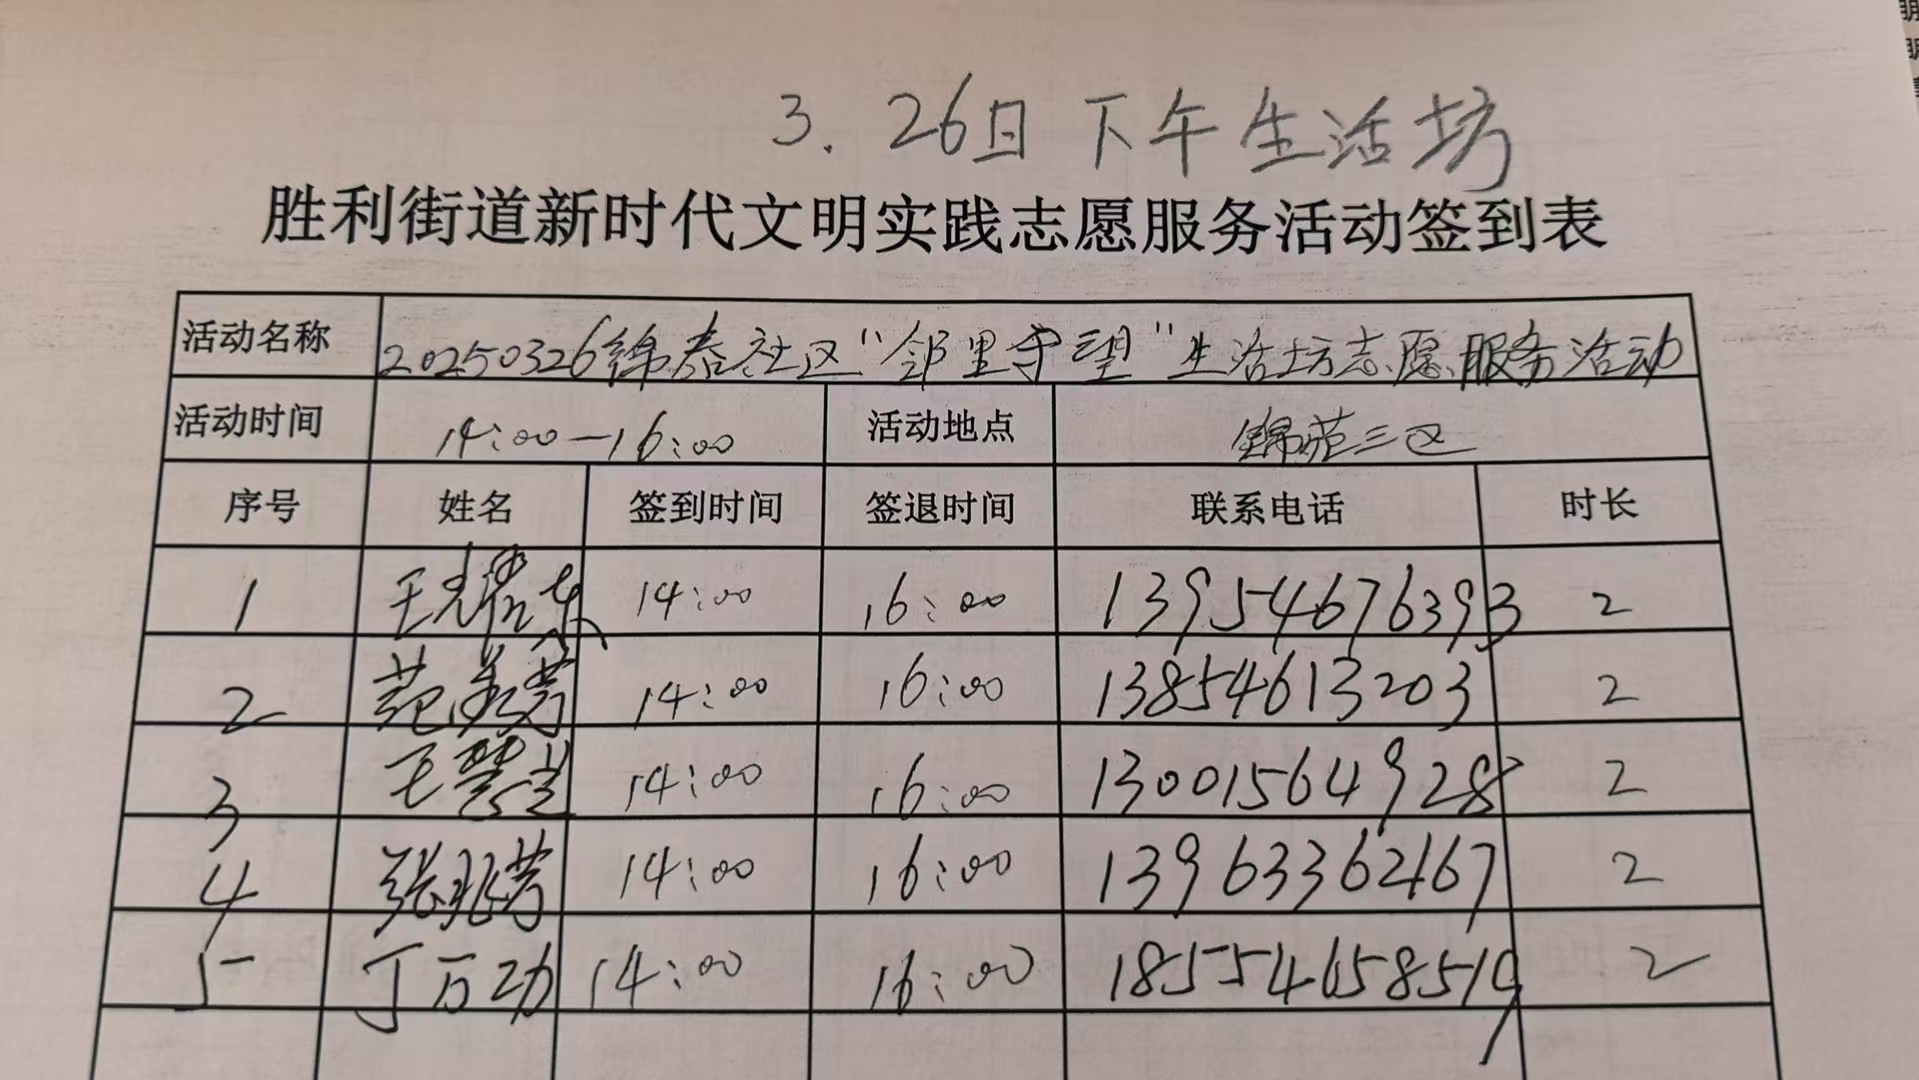 3. 26日 下午 生活坊
胜利街道新时代文明实践志愿服务活动签到表
活动名称 20250326锦泰社区“邻里守望”生活坊志愿服务活动
活动时间 14:00—16:00 活动地点 锦苑三区
序号 姓名 签到时间 签退时间 联系电话 时长
1 14:00 16:00 13954676393 2
2 14:00 16:00 13854613203 2
3 14:00 16:00 13001564928 2
4 张兆芳 14:00 16:00 13963362467 2
5 丁万功 14:00 16:00 2